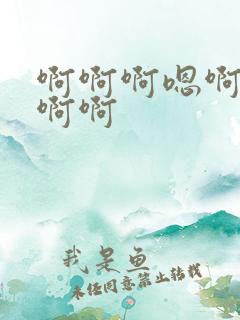 啊啊啊嗯啊
啊啊
我是鱼
未经同意禁止转载